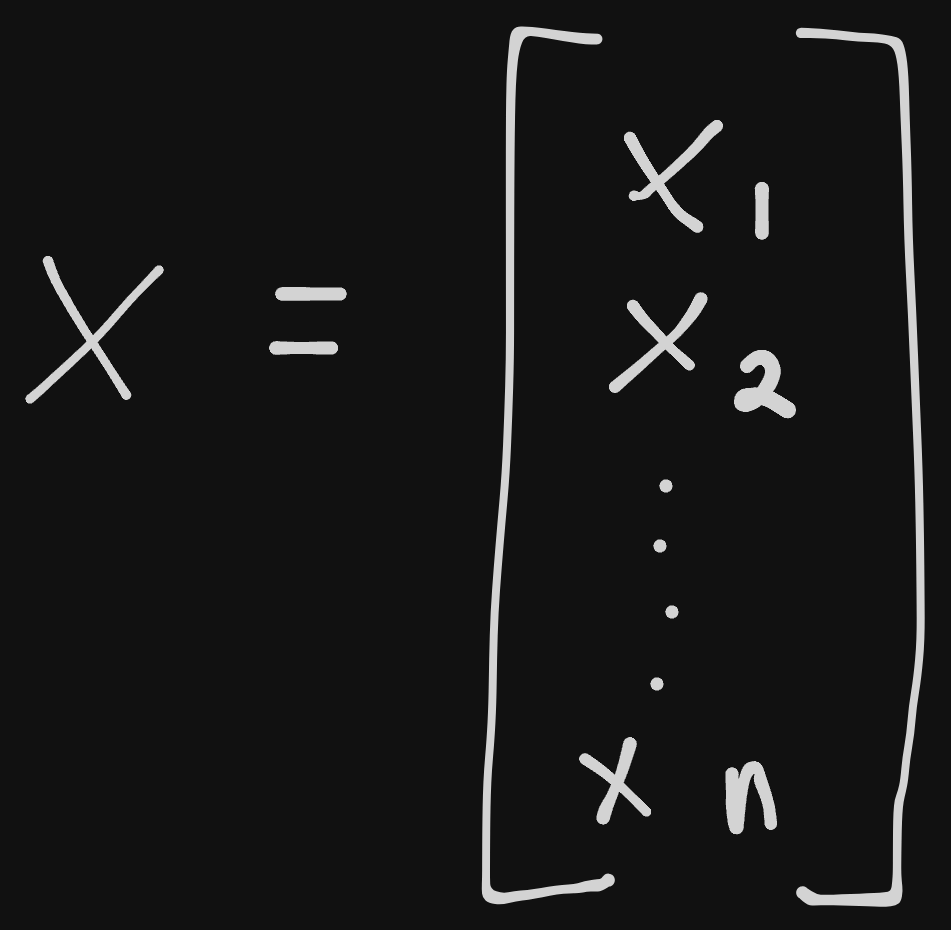 X = [
x₁
x₂
.
.
.
.
xₙ
]